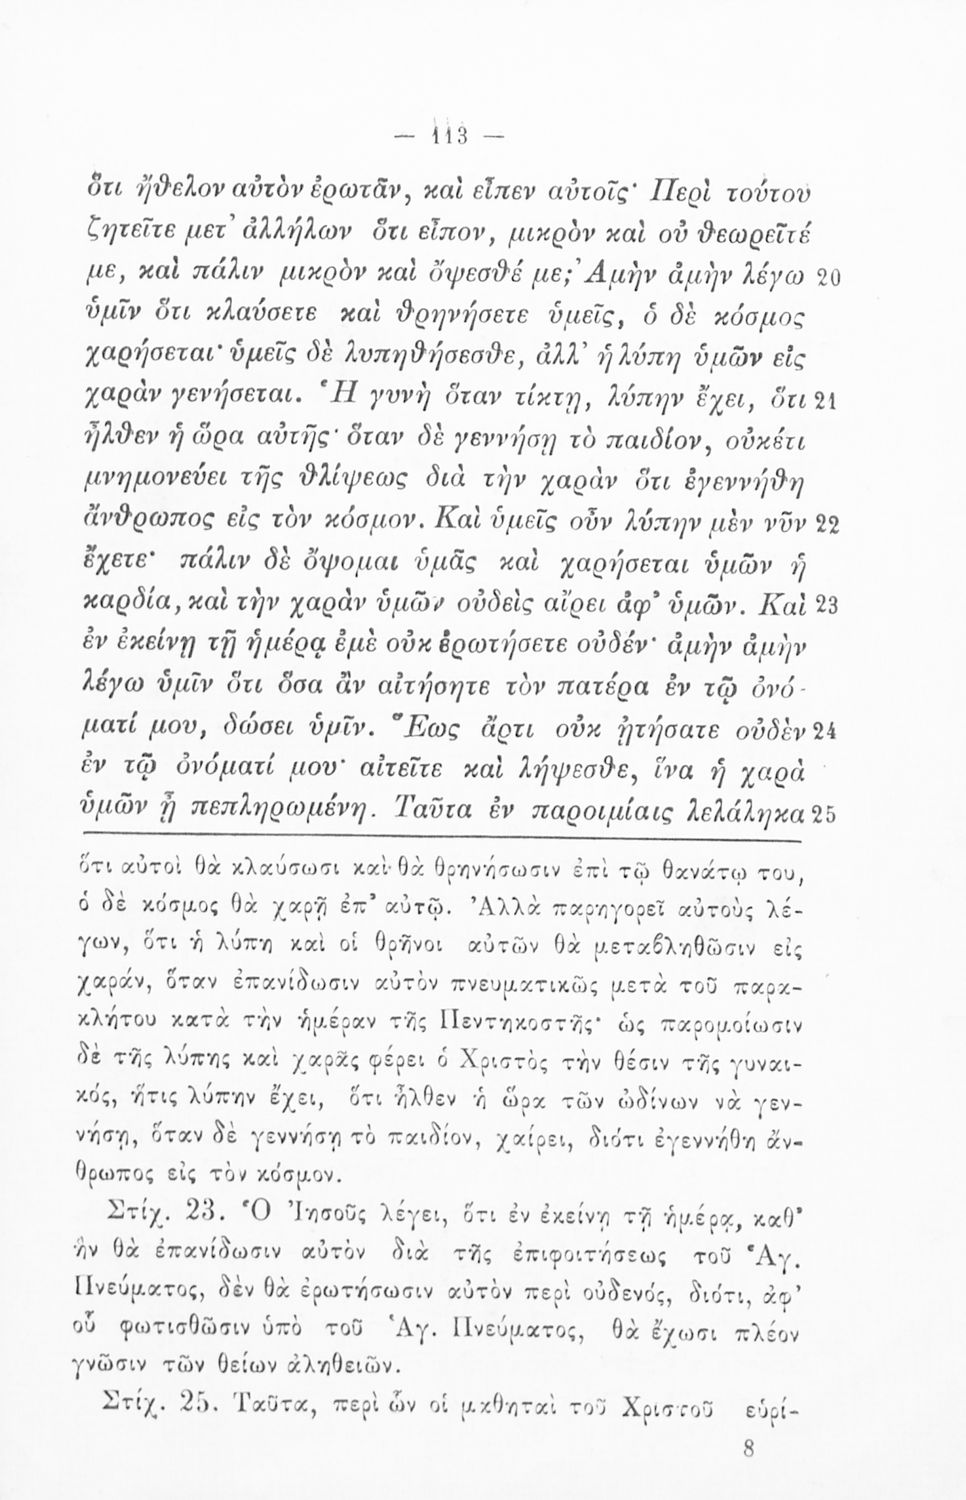 — 113 —
ὅτι ἤθελον αὐτὸν ἐρωτᾶν, καὶ εἶπεν αὐτοῖς· Περὶ τούτου
ζητεῖτε μετ᾽ ἀλλήλων ὅτι εἶπον, μικρὸν καὶ οὐ θεωρεῖτέ
με, καὶ πάλιν μικρὸν καὶ ὄψεσθέ με; Ἀμὴν ἀμὴν λέγω 20
ὑμῖν ὅτι κλαύσετε καὶ θρηνήσετε ὑμεῖς, ὁ δὲ κόσμος
χαρήσεται· ὑμεῖς δὲ λυπηθήσεσθε, ἀλλ᾽ ἡ λύπη ὑμῶν εἰς
χαρὰν γενήσεται. Ἡ γυνὴ ὅταν τίκτῃ, λύπην ἔχει, ὅτι 21
ἦλθεν ἡ ὥρα αὐτῆς· ὅταν δὲ γεννήσῃ τὸ παιδίον, οὐκέτι
μνημονεύει τῆς θλίψεως διὰ τὴν χαρὰν ὅτι ἐγεννήθη
ἄνθρωπος εἰς τὸν κόσμον. Καὶ ὑμεῖς οὖν λύπην μὲν νῦν 22
ἔχετε· πάλιν δὲ ὄψομαι ὑμᾶς καὶ χαρήσεται ὑμῶν ἡ
καρδία, καὶ τὴν χαρὰν ὑμῶν οὐδεὶς αἴρει ἀφ᾽ ὑμῶν. Καὶ 23
ἐν ἐκείνῃ τῇ ἡμέρᾳ ἐμὲ οὐκ ἐρωτήσετε οὐδέν· ἀμὴν ἀμὴν
λέγω ὑμῖν ὅτι ὅσα ἂν αἰτήσητε τὸν πατέρα ἐν τῷ ὀνό-
ματί μου, δώσει ὑμῖν. Ἕως ἄρτι οὐκ ᾐτήσατε οὐδὲν 24
ἐν τῷ ὀνόματί μου· αἰτεῖτε καὶ λήψεσθε, ἵνα ἡ χαρὰ
ὑμῶν ᾖ πεπληρωμένη. Ταῦτα ἐν παροιμίαις λελάληκα 25
ὅτι αὐτοὶ θὰ κλαύσωσι καὶ θὰ θρηνήσωσιν ἐπὶ τῷ θανάτῳ του,
ὁ δὲ κόσμος θὰ χαρῇ ἐπ᾽ αὐτῷ. Ἀλλὰ παρηγορεῖ αὐτοὺς λέ-
γων, ὅτι ἡ λύπη καὶ οἱ θρῆνοι αὐτῶν θὰ μεταβληθῶσιν εἰς
χαράν, ὅταν ἐπανίδωσιν αὐτὸν πνευματικῶς μετὰ τοῦ παρα-
κλήτου κατὰ τὴν ἡμέραν τῆς Πεντηκοστῆς· ὡς παρομοίωσιν
δὲ τῆς λύπης καὶ χαρᾶς φέρει ὁ Χριστὸς τὴν θέσιν τῆς γυναι-
κός, ἥτις λύπην ἔχει, ὅτι ἦλθεν ἡ ὥρα τῶν ὠδίνων νὰ γεν-
νήσῃ, ὅταν δὲ γεννήσῃ τὸ παιδίον, χαίρει, διότι ἐγεννήθη ἄν-
θρωπος εἰς τὸν κόσμον.
Στίχ. 23. Ὁ Ἰησοῦς λέγει, ὅτι ἐν ἐκείνῃ τῇ ἡμέρᾳ, καθ᾽
ἣν θὰ ἐπανίδωσιν αὐτὸν διὰ τῆς ἐπιφοιτήσεως τοῦ Ἁγ.
Πνεύματος, δὲν θὰ ἐρωτήσωσιν αὐτὸν περὶ οὐδενός, διότι, ἀφ᾽
οὗ φωτισθῶσιν ὑπὸ τοῦ Ἁγ. Πνεύματος, θὰ ἔχωσι πλέον
γνῶσιν τῶν θείων ἀληθειῶν.
Στίχ. 25. Ταῦτα, περὶ ὧν οἱ μαθηταὶ τοῦ Χριστοῦ εὑρί-
8